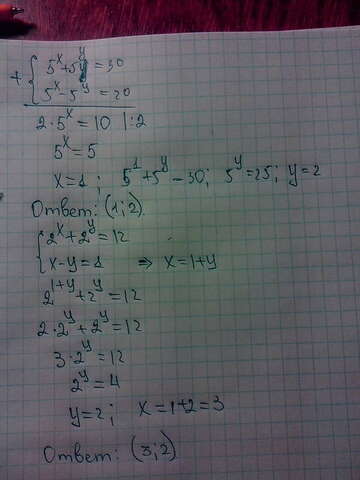 + { 5^x + 5^y = 30
5^x - 5^y = 20
2·5^x = 10 |:2
5^x = 5
x = 1 ; 5^1 + 5^y = 30; 5^y = 25; y = 2
Ответ: (1;2)
{ 2^x + 2^y = 12
x - y = 1 ⇒ x = 1+y
2^(1+y) + 2^y = 12
2·2^y + 2^y = 12
3·2^y = 12
2^y = 4
y = 2 ; x = 1+2 = 3
Ответ: (3;2)